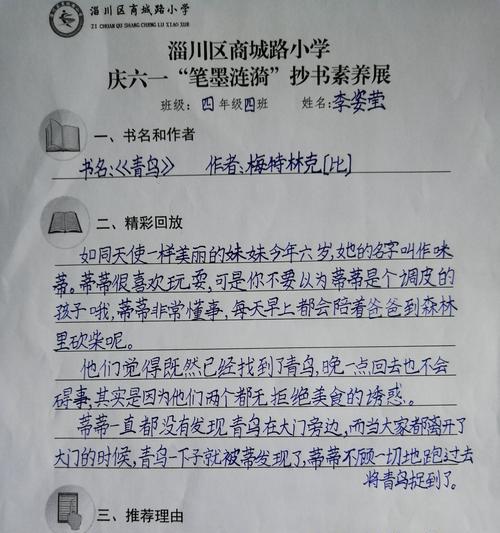 淄川区商城路小学
ZI CHUAN QU SHANG CHENG LU XIAO XUE
淄川区商城路小学
庆六一“笔墨涟漪”抄书素养展
班级：四年级四班 姓名：李姿莹
一、书名和作者
书名：《青鸟》 作者：梅特林克[比]
二、精彩回放
如同天使一样美丽的妹妹今年六岁，她的名字叫作咪
蒂。蒂蒂很喜欢玩耍，可是你不要以为蒂蒂是个调皮的
孩子哦，蒂蒂非常懂事，每天早上都会陪着爸爸到森林
里砍柴呢。
他们觉得既然已经找到了青鸟，晚一点回去也不会
碍事，其实是因为他们两个都无拒绝美食的诱惑。
蒂蒂一直都没有发现青鸟在大门旁边，而当大家都离开了
大门的时候，青鸟一下子就被蒂发现了，蒂蒂不顾一切地跑过去
将青鸟捉到了。
三、推荐理由